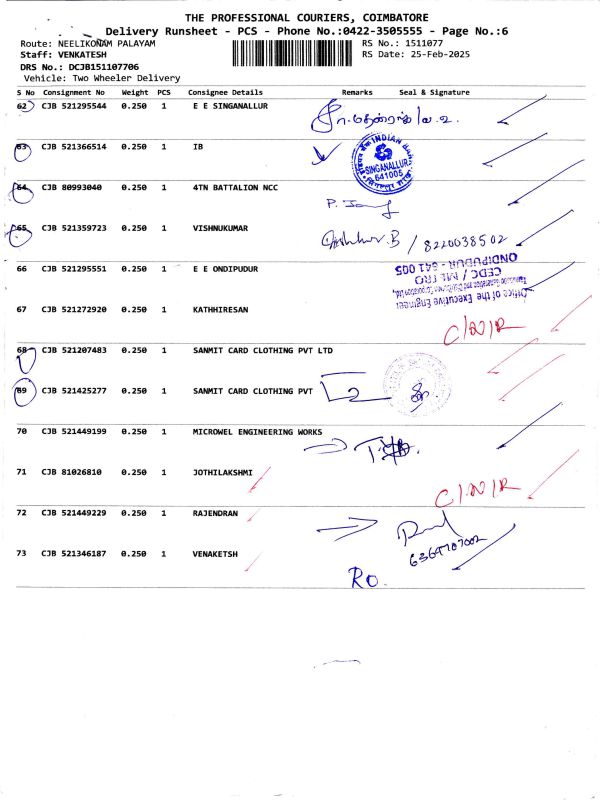 THE PROFESSIONAL COURIERS, COIMBATORE
Delivery Runsheet - PCS - Phone No.:0422-3505555 - Page No.:6
Route: NEELIKONAM PALAYAM
RS No.: 1511077
Staff: VENKATESH
RS Date: 25-Feb-2025
DRS No.: DCJB151107706
Vehicle: Two Wheeler Delivery
S No Consignment No Weight PCS Consignee Details Remarks Seal & Signature
62 CJB 521295544 0.250 1 E E SINGANALLUR
63 CJB 521366514 0.250 1 IB
INDIAN BANK
SINGANALLUR
641005
64 CJB 80993040 0.250 1 4TN BATTALION NCC
65 CJB 521359723 0.250 1 VISHNUKUMAR
/ 8220038502
66 CJB 521295551 0.250 1 E E ONDIPUDUR
Office of the Executive Engineer
Tamilnadu Generation and Distribution Corporation Ltd.,
CEDC / METRO
ONDIPUDUR - 641 005
67 CJB 521272920 0.250 1 KATHHIRESAN
C/N/R
68 CJB 521207483 0.250 1 SANMIT CARD CLOTHING PVT LTD
69 CJB 521425277 0.250 1 SANMIT CARD CLOTHING PVT
2
70 CJB 521449199 0.250 1 MICROWEL ENGINEERING WORKS
71 CJB 81026810 0.250 1 JOTHILAKSHMI
C/N/R
72 CJB 521449229 0.250 1 RAJENDRAN
6369707002
73 CJB 521346187 0.250 1 VENAKETSH
RO.